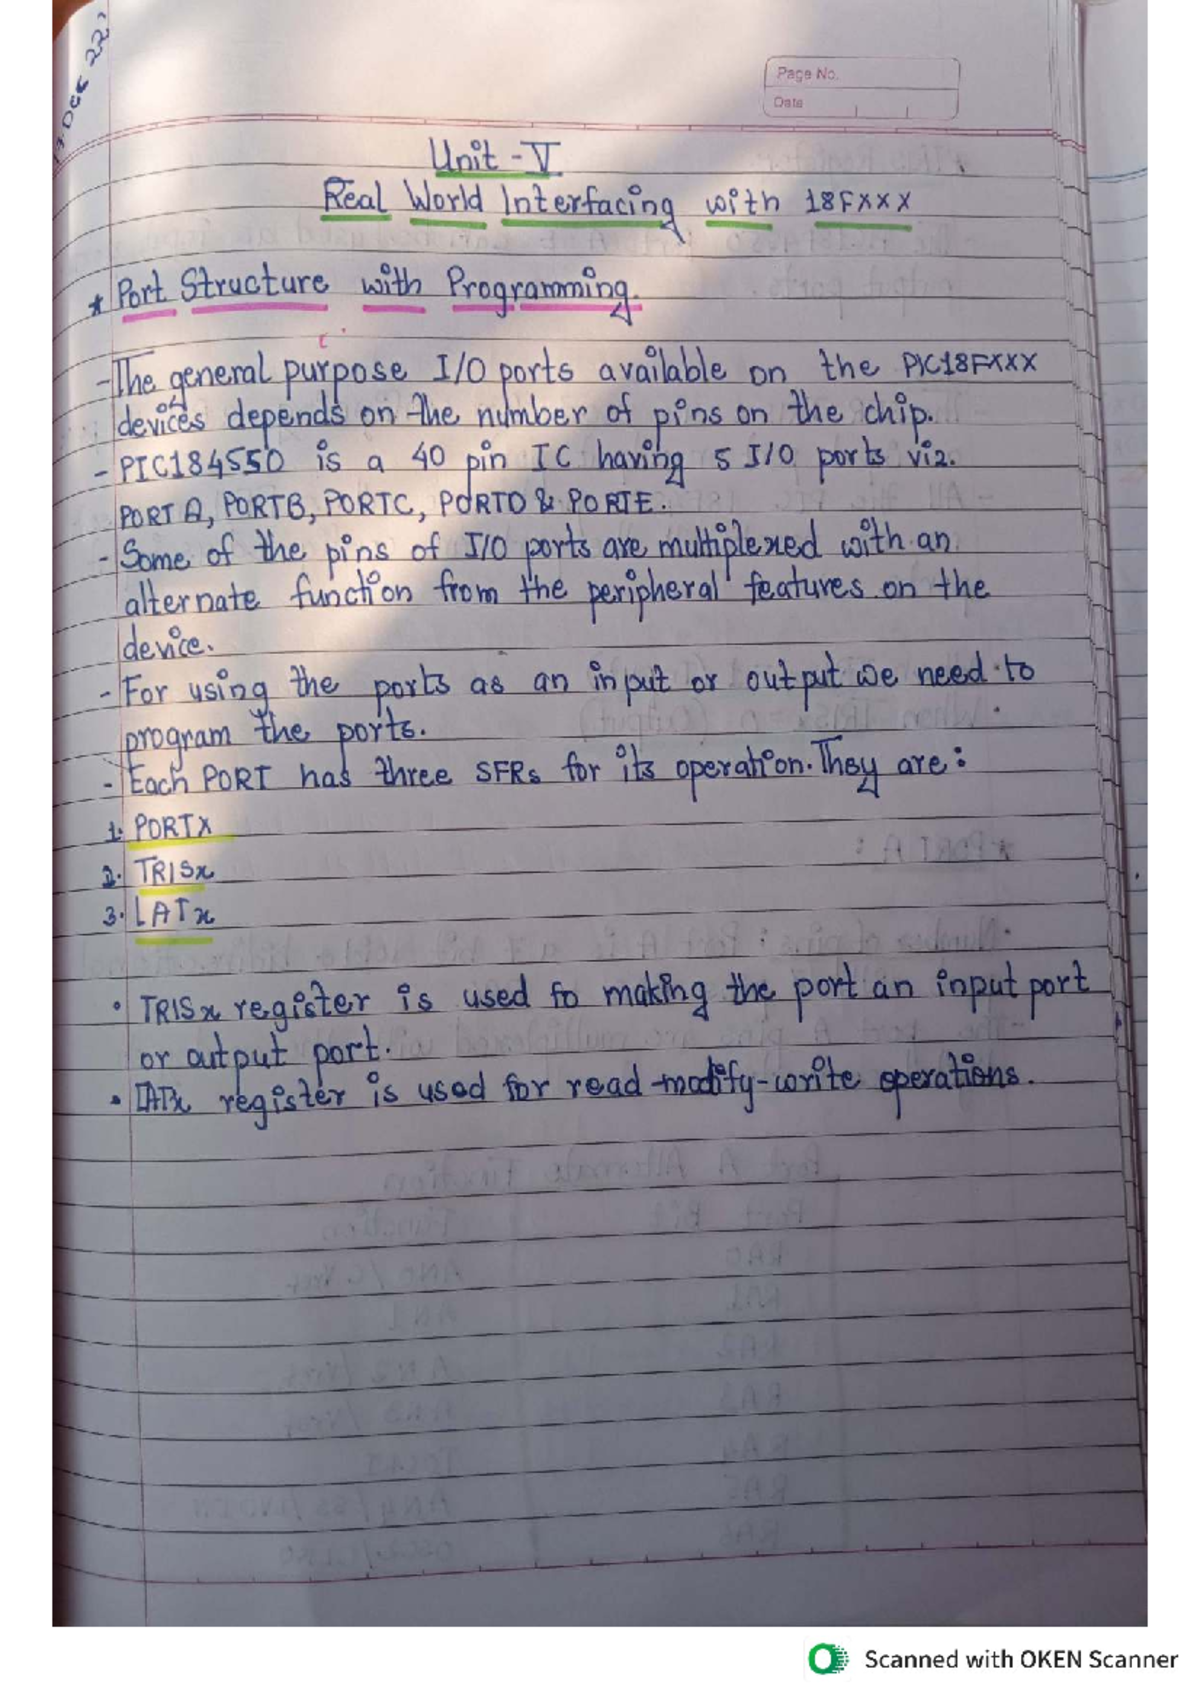 DEC 22'
Page No.
Date
Unit - V
Real World Interfacing with 18FXXX
* Port Structure with Programming.
- The general purpose I/O ports available on the PIC18FXXX
devices depends on the number of pins on the chip.
- PIC184550 is a 40 pin IC having 5 I/O ports viz.
PORTA, PORTB, PORTC, PORTD & PORTE.
- Some of the pins of I/O ports are multiplexed with an
alternate function from the peripheral features on the
device.
- For using the ports as an input or output we need to
program the ports.
- Each PORT has three SFRs for its operation. They are:
1. PORTX
2. TRISx
3. LATx
• TRISx register is used fo making the port an input port
or output port.
• LATx register is used for read-modify-write operations.
Scanned with OKEN Scanner